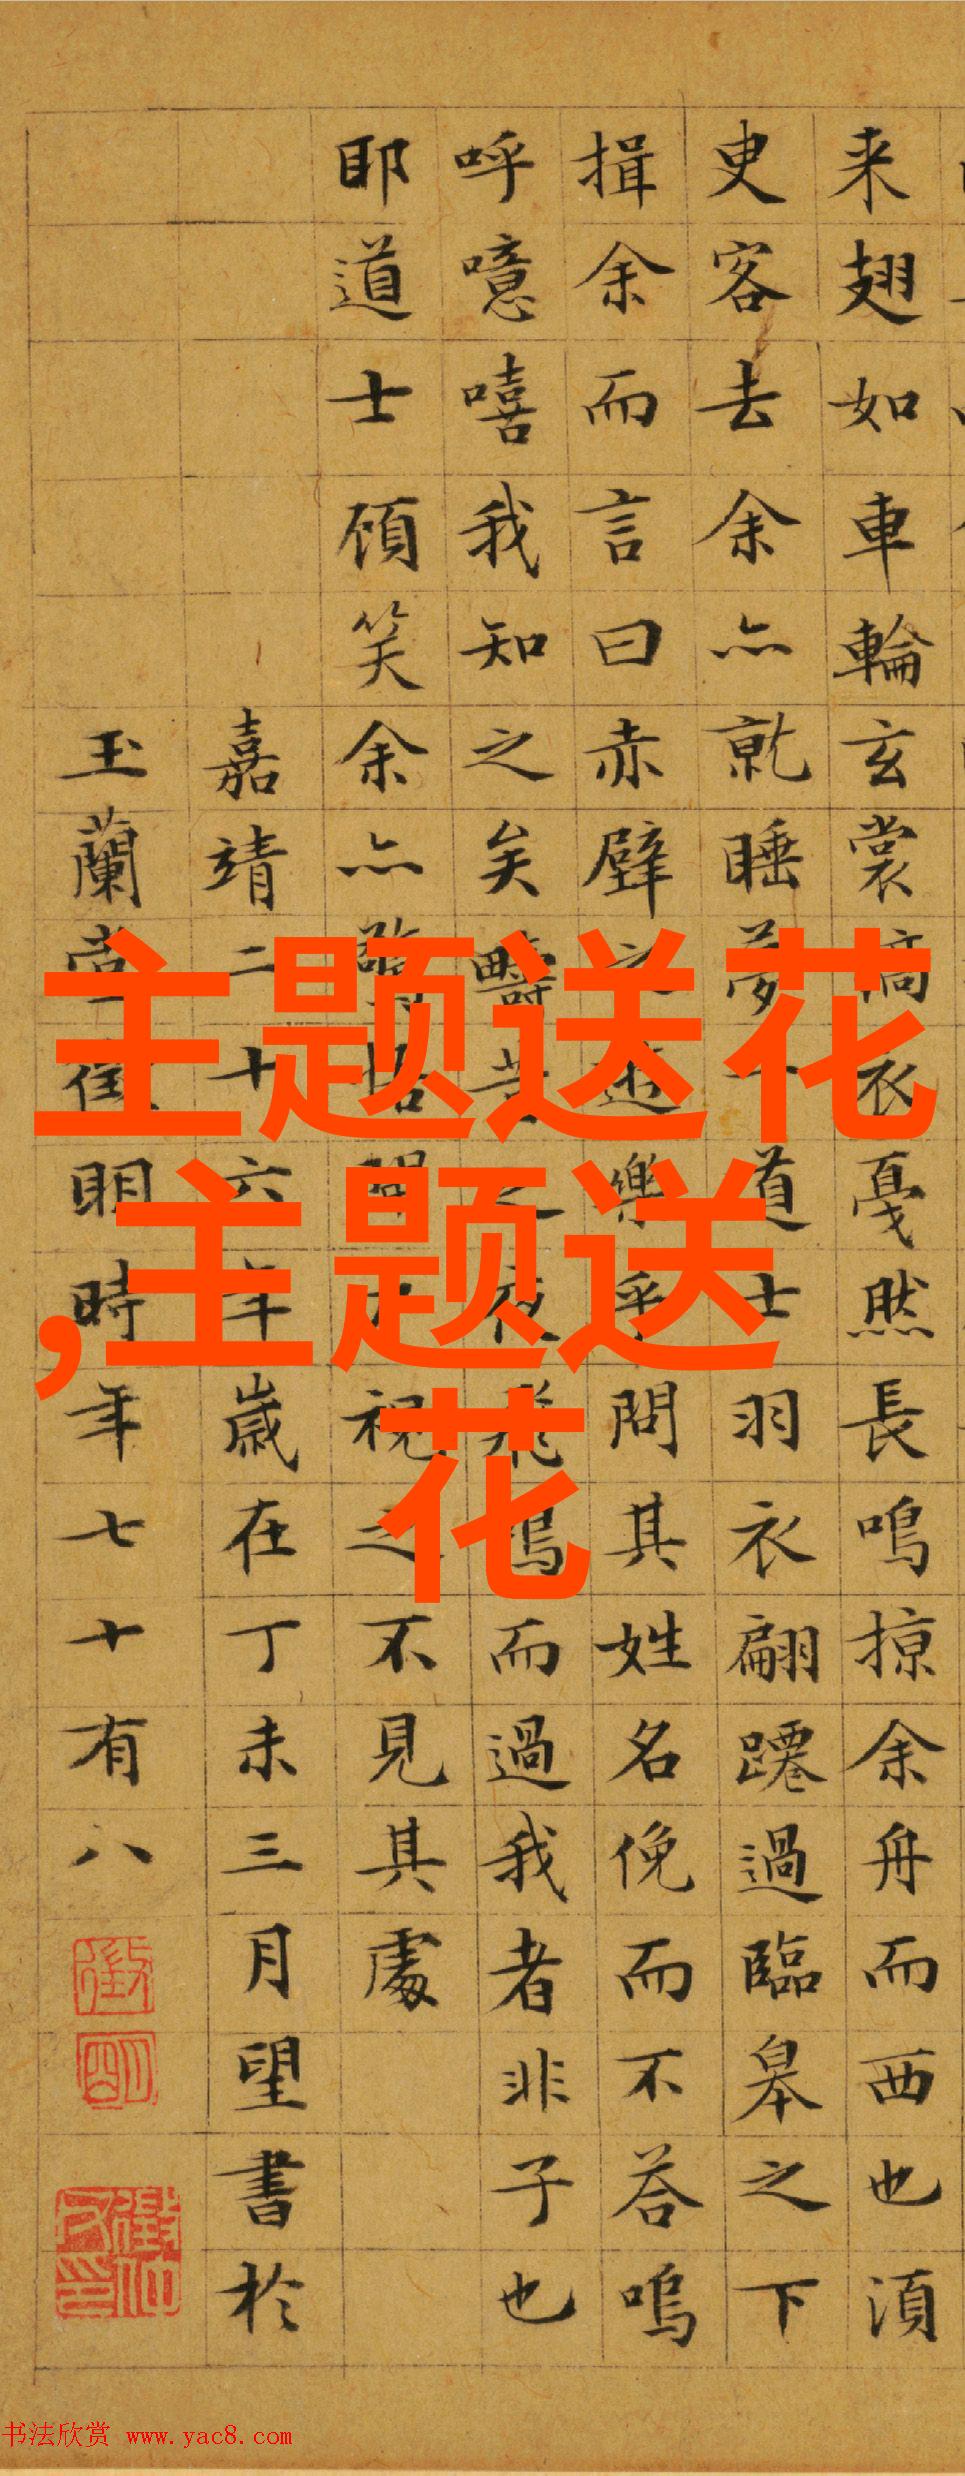 来翅如車輪玄裳縞衣戛然長鳴掠余舟而西也須
臾客去余亦就睡夢一道士羽衣翩躚過臨皋之下
揖余而言曰赤壁之遊樂乎問其姓名俛而不荅嗚
呼噫嘻我知之矣疇昔之夜飛鳴而過我者非子也
耶道士顧笑余亦驚悟開戶視之不見其處
嘉靖二十六年歲在丁未三月望書於
玉蘭堂徵明時年七十有八
徵
明
主题送花
,主题送
花
书法欣赏 www.yac8.com